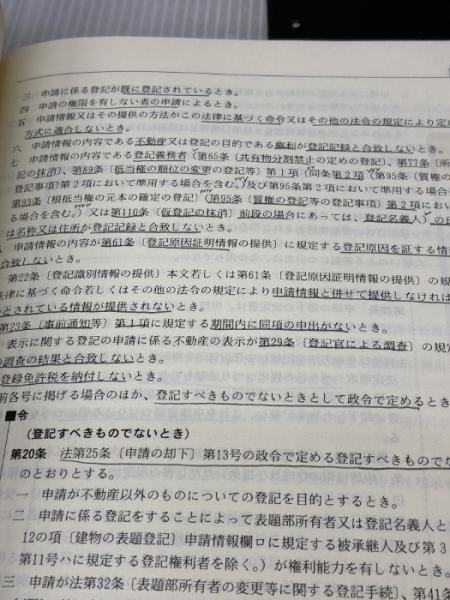 三　申請に係る登記が既に登記されているとき。
四　申請の権限を有しない者の申請によるとき。
五　申請情報又はその提供の方法がこの法律に基づく命令又はその他の法令の規定により定め
方式に適合しないとき。
六　申請情報の内容である不動産又は登記の目的である権利が登記記録と合致しないとき。
七　申請情報の内容である登記義務者（第65条〔共有物分割禁止の定めの登記〕、第77条〔所
記の抹消〕、第89条〔抵当権の順位の変更の登記等〕第1項（同条第2項（第95条〔質権の
登記事項〕第2項において準用する場合を含む。）及び第95条第2項において準用する場合
第93条〔根抵当権の元本の確定の登記〕（第95条〔質権の登記等の登記事項〕第2項におい
る場合を含む。）又は第110条〔仮登記の抹消〕前段の場合にあっては、登記名義人）の
は名称又は住所が登記記録と合致しないとき。
申請情報の内容が第61条〔登記原因証明情報の提供〕に規定する登記原因を証する情
合致しないとき。
第22条〔登記識別情報の提供〕本文若しくは第61条〔登記原因証明情報の提供〕の規
法律に基づく命令若しくはその他の法令の規定により申請情報と併せて提供しなければ
とされている情報が提供されないとき。
第23条〔事前通知等〕第1項に規定する期間内に同項の申出がないとき。
表示に関する登記の申請に係る不動産の表示が第29条〔登記官による調査〕の規
の調査の結果と合致しないとき。
登録免許税を納付しないとき。
前各号に掲げる場合のほか、登記すべきものでないときとして政令で定めるとき
■令
（登記すべきものでないとき）
第20条　法第25条〔申請の却下〕第13号の政令で定める登記すべきものでな
のとおりとする。
一　申請が不動産以外のものについての登記を目的とするとき。
二　申請に係る登記をすることによって表題部所有者又は登記名義人と
12の項〔建物の表題登記〕申請情報欄ロに規定する被承継人及び第3
第11号ハに規定する登記権利者を除く。）が権利能力を有しないとき。
三　申請が法第32条〔表題部所有者の変更等に関する登記手続〕、第41条